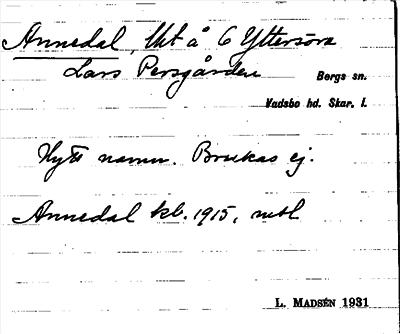 Annedal, Uht å 6 Yttersöra
Lars Persgården
Bergs sn.
Vadsbo hd. Skar. l.
Nytt namn. Brukas ej.
Annedal kl. 1915,
L. MADSÉN 1931